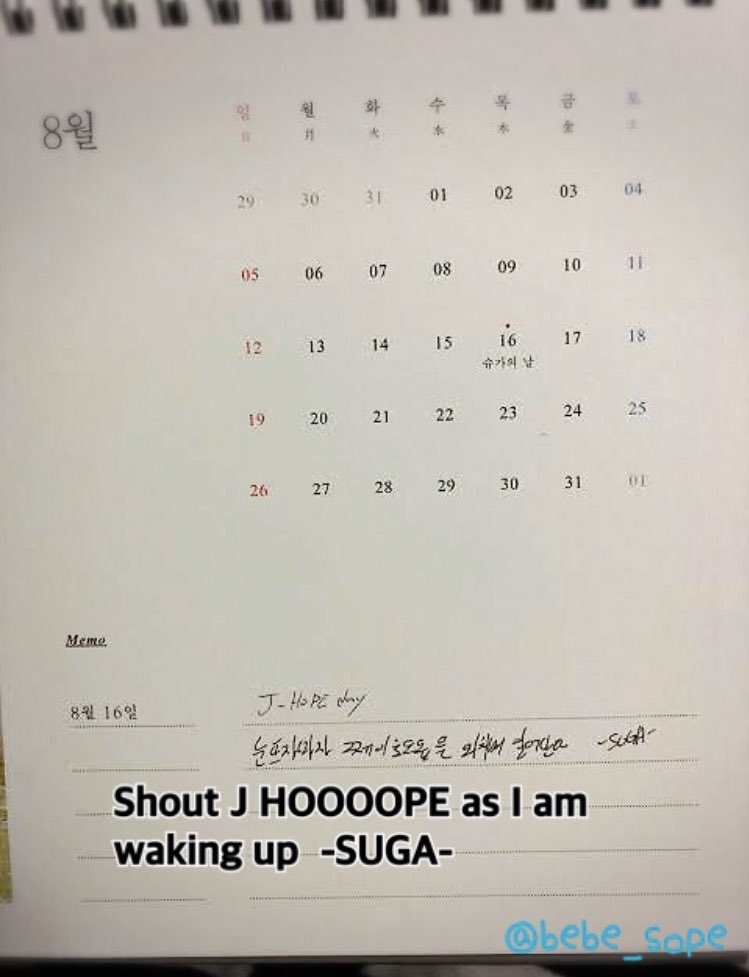 8월
일 월 화 수 목 금 토
日 月 火 水 木 金 土
29 30 31 01 02 03 04
05 06 07 08 09 10 11
12 13 14 15 16 17 18
슈가의 날
19 20 21 22 23 24 25
26 27 28 29 30 31 01
Memo.
8월 16일 J-HOPE day
눈뜨자마자 제이호오옵을 외치며 일어난다 -SUGA-
Shout J HOOOOPE as I am
waking up -SUGA-
@bebe_sope